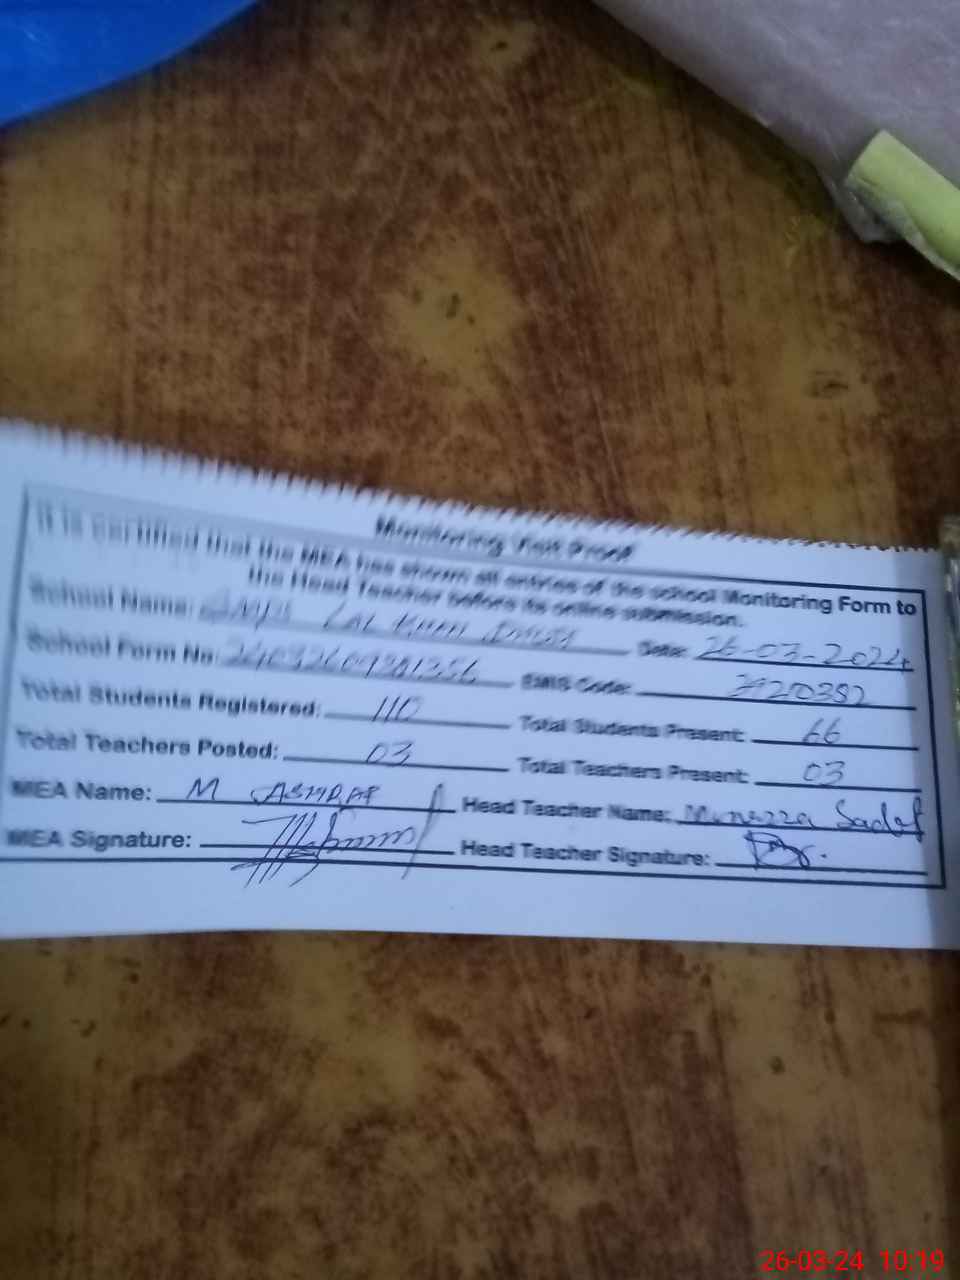 Monitoring Visit Proof
It is certified that the MEA has shown all entries of the school Monitoring Form to
the Head Teacher before its online submission.
School Name: LAL KHAN Date: 26-03-2024
School Form No: EMIS Code: 39210382
Total Students Registered: 110 Total Students Present: 66
Total Teachers Posted: 03 Total Teachers Present: 03
MEA Name: M ASHRAF Head Teacher Name: Munazza Sadaf
MEA Signature: Head Teacher Signature:
26-03-24 10:19